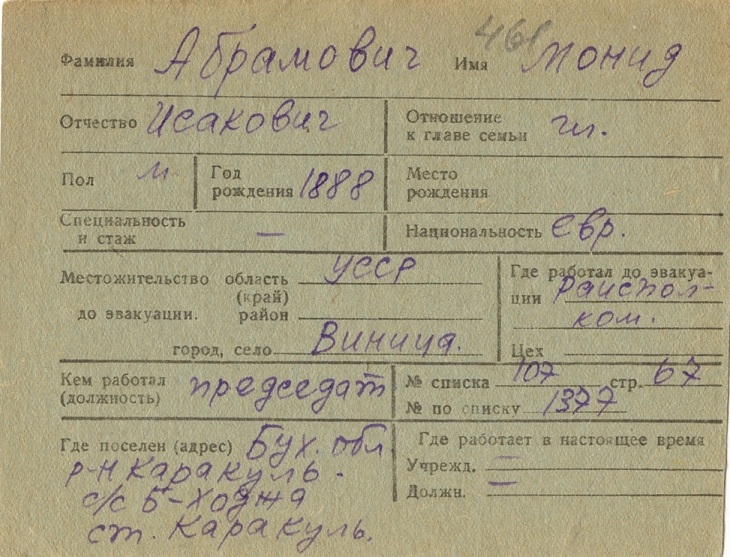 Фамилия Абрамович Имя Монид
461
Отчество Исакович Отношение к главе семьи гл.
Пол м Год рождения 1888 Место рождения
Специальность и стаж — Национальность Евр.
Местожительство до эвакуации. область (край) УССР
район
город, село Виница.
Где работал до эвакуации Райсполком.
Цех
Кем работал (должность) председат
№ списка 107 стр. 67
№ по списку 1377
Где поселен (адрес) Бух. обл.
р-н Каракуль-
с/с Б-Ходжа
ст. Каракуль.
Где работает в настоящее время
Учрежд. —
Должн. —